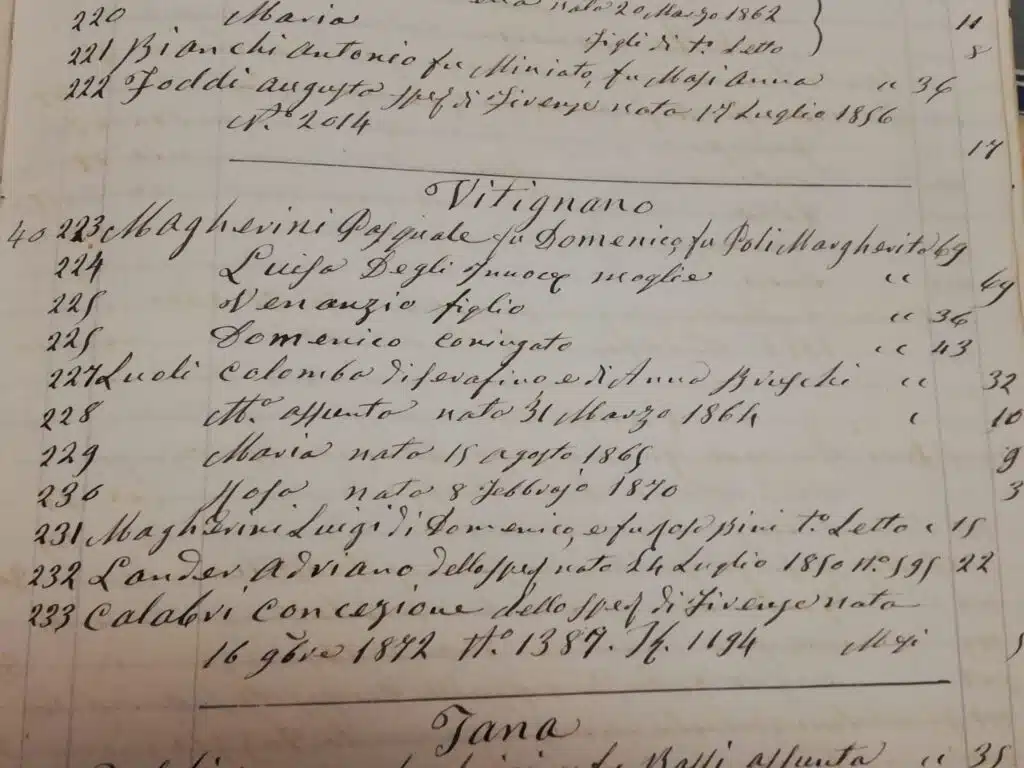 nata 20 Marzo 1862
220 Maria 11
figli di 1º Letto 8
221 Bianchi Antonio fu Miniato, fu Masi Anna " 36
222 Foddi Augusta sped di Firenze nata 17 Luglio 1856
Nº 2014 17
Vitignano
40 223 Magherini Pasquale fu Domenico, fu Poli Margherita 69
224 Luisa Degl'Innocq moglie " 69
225 Venanzio figlio " 36
225 Domenico coniugato " 43
227 Luoli Colomba di Serafino e di Anna Bruschi " 32
228 Mª Assunta nata 31 Marzo 1864 " 10
229 Maria nata 15 Agosto 1865 9
230 Rosa nata 8 Febbrajo 1870 3
231 Magherini Luigi di Domenico, e fu Rosa Bini 1º Letto " 15
232 Lander Adriano dello sped nato 24 Luglio 1850 Nº 595 22
233 Calabri Concezione dello sped di Firenze nata
16 9bre 1872 Nº 1387. 1194 Mesi 5
Tana
fu Bassi Assunta " 35